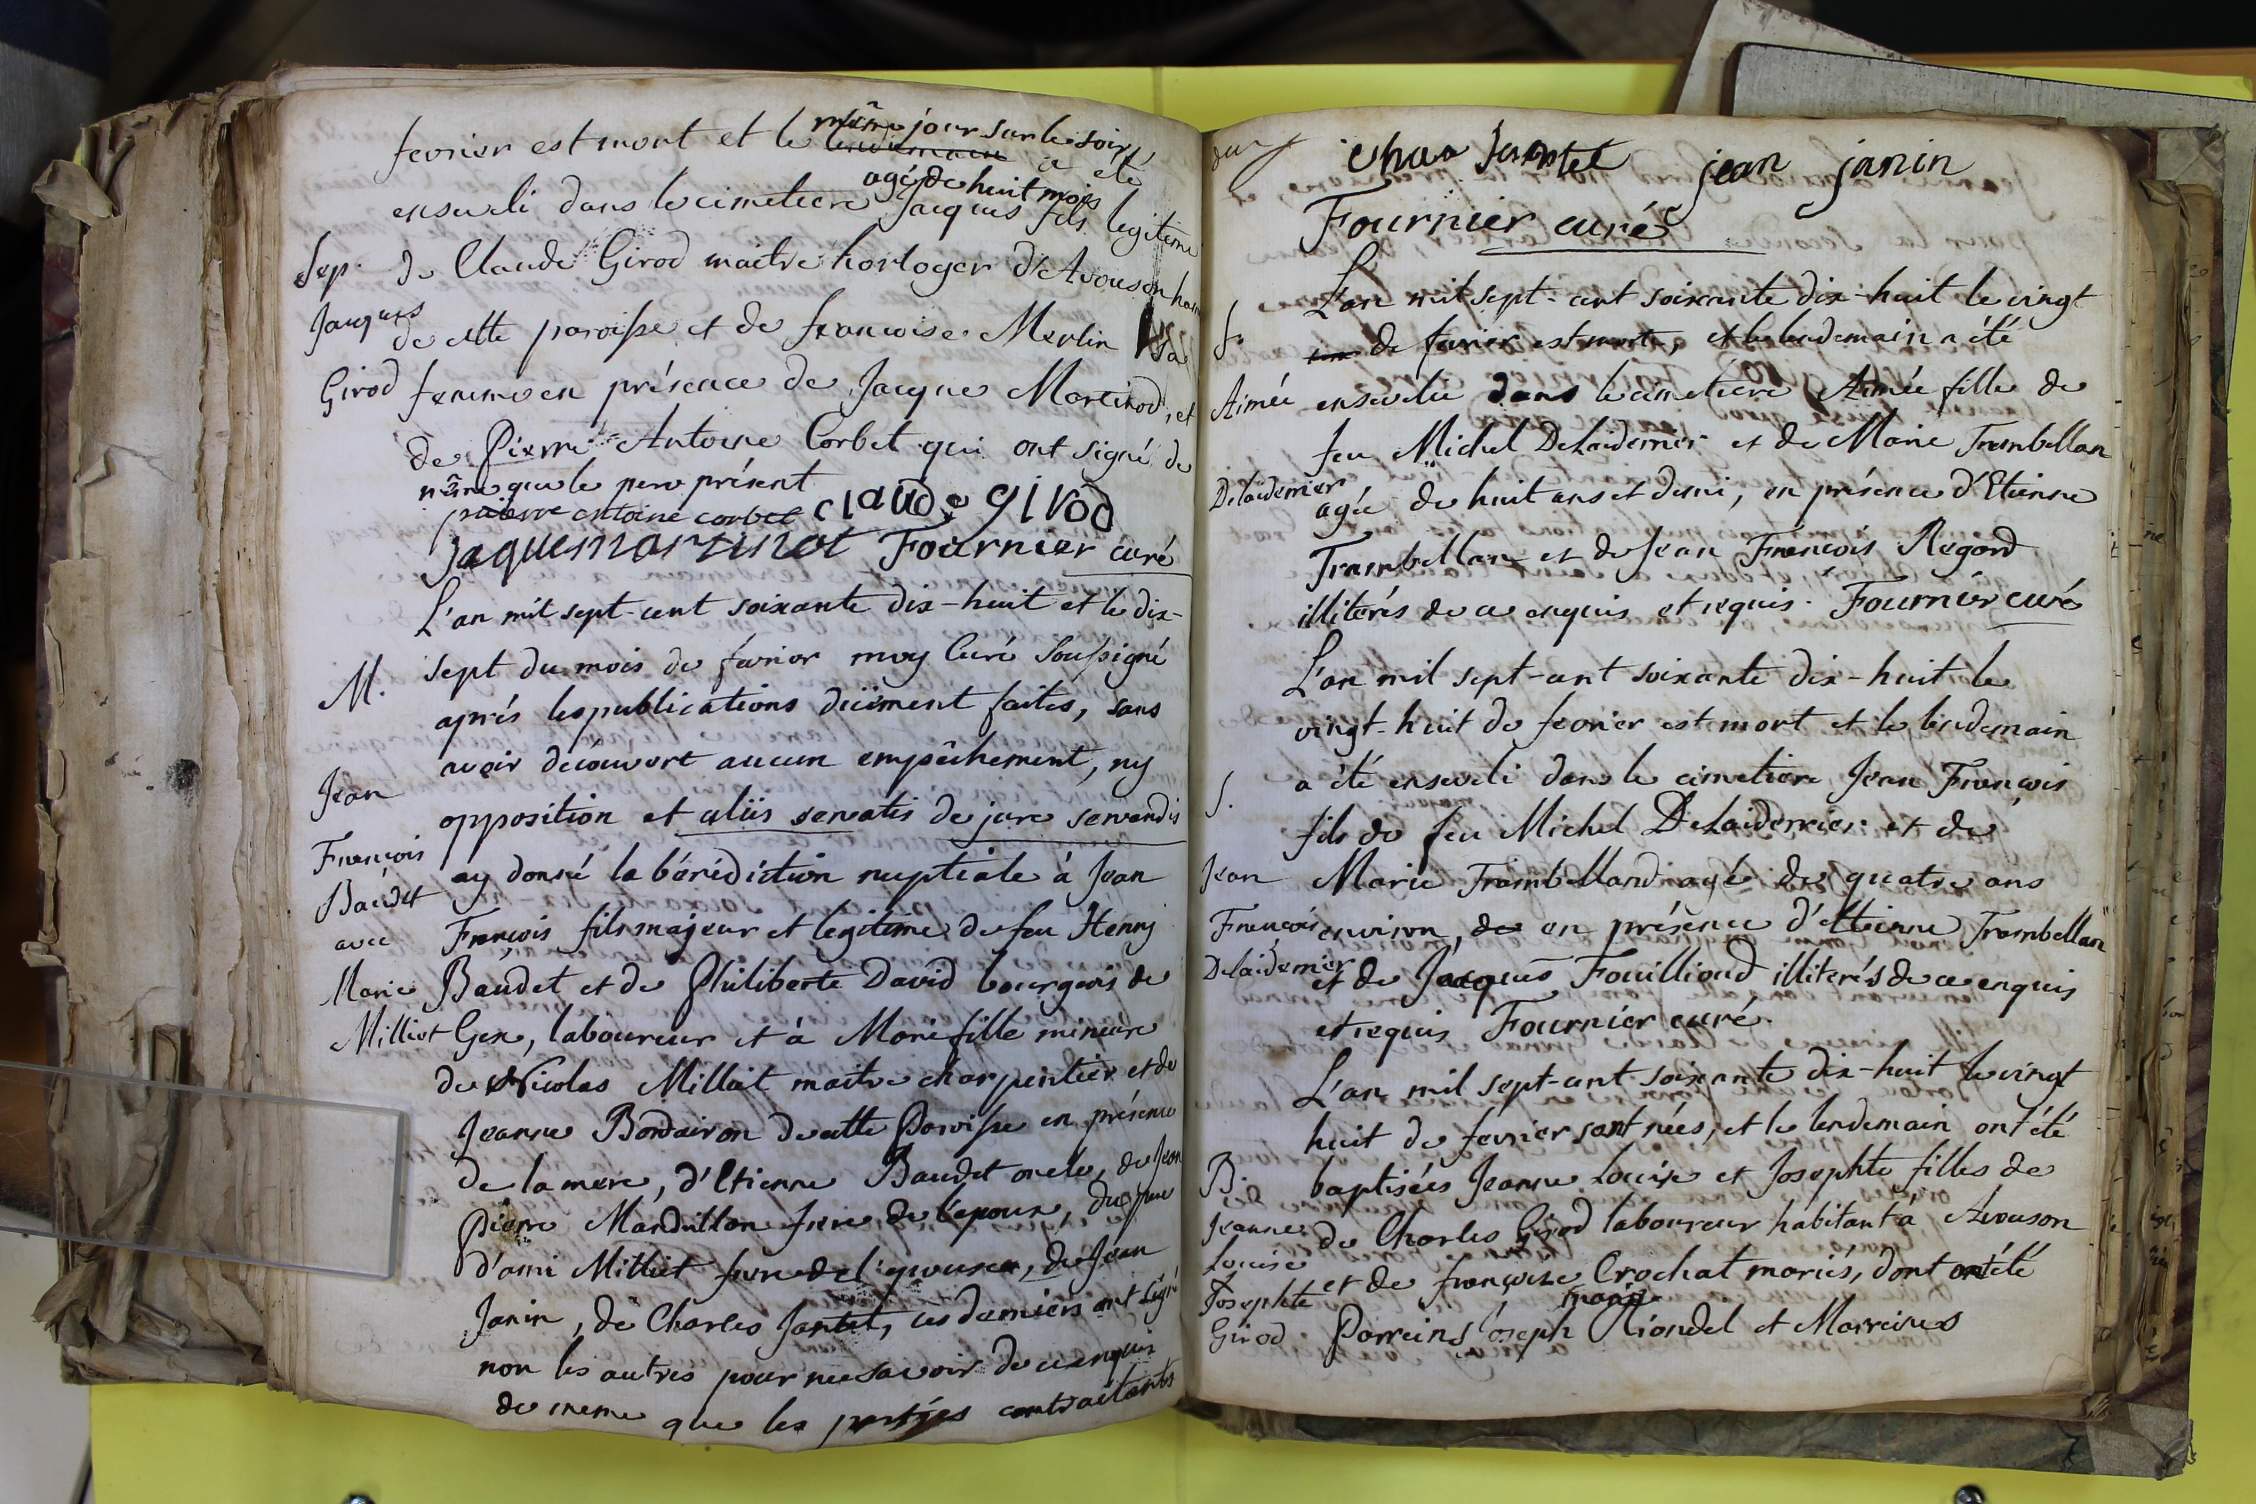 fevrier est mort et le même jour sur le soir a été
agé de huit mois
enseveli dans le cimetiere Jacques fils legitime
Sep. de Claude Girod maitre horloger d'Avouson ham
Jacques de cette paroisse et de francoise Merlin sa
Girod femme en présence de Jacque Martinod, et
de Pierre Antoine Corbet qui ont signé de
même que le pere présent
pierre antoine corbet claude girod
Jaque martinot Fournier curé
L'an mil sept-cent soixante dix-huit et le dix-
M. sept du mois de fevrier moy Curé Soussigné
aprés les publications düement faites, sans
avoir découvert aucun empêchement, ny
Jean opposition et aliis servatis de jure servandis
François
Baudet ay donné la bénédiction nuptiale à Jean
avec François fils majeur et legitime de feu Henry
Marie Baudet et de Philiberte David bourgeois de
Milliet Gex, laboureur et à Marie fille mineure
de Nicolas Milliet maitre charpentier et de
Jeanne Bordairon de cette Paroisse en présence
de la mere, d'Etienne Baudet oncle, de Jean
Pierre Mandrillon frere de l'epoux, du pere
d'ami Milliet frere de l'epouse, de Jean
Janin, de Charles Jantet, ces derniers ont signé
non les autres pour ne savoir de ce enquis
de meme que les parties contractants
Jantet jean janin
Fournier curé
L'an mil sept-cent soixante dix-huit le vingt
S. de fevrier est morte, et le lendemain a été
Aimée ensevelie dans le cimetiere Aimée fille de
feu Michel Delaidernier et de Marie Trambellan
Delaidernier agée de huit ans et demi, en présence d'Etienne
Trambellan et de Jean François Regard
illiterés de ce enquis et requis. Fournier curé
L'an mil sept-cent soixante dix-huit le
vingt-huit de fevrier est mort et le lendemain
a été enseveli dans le cimetiere Jean François
S. fils de feu Michel Delaidernier et de
Jean Marie Trambelland agé de quatre ans
François environ, en présence d'Etienne Trambellan
Delaidernier et de Jacques Fouilliond illiterés de ce enquis
et requis Fournier curé.
L'an mil sept-cent soixante dix-huit le vingt
huit de fevrier sont nées, et le lendemain ont été
B. baptisées Jeanne Louise et Josephte filles de
Jeanne de Charles Girod laboureur habitant à Avouson
Louise
Josephte et de françoise Crochat mariés, dont ont été
Girod Parreins Joseph Riondel et Marreines